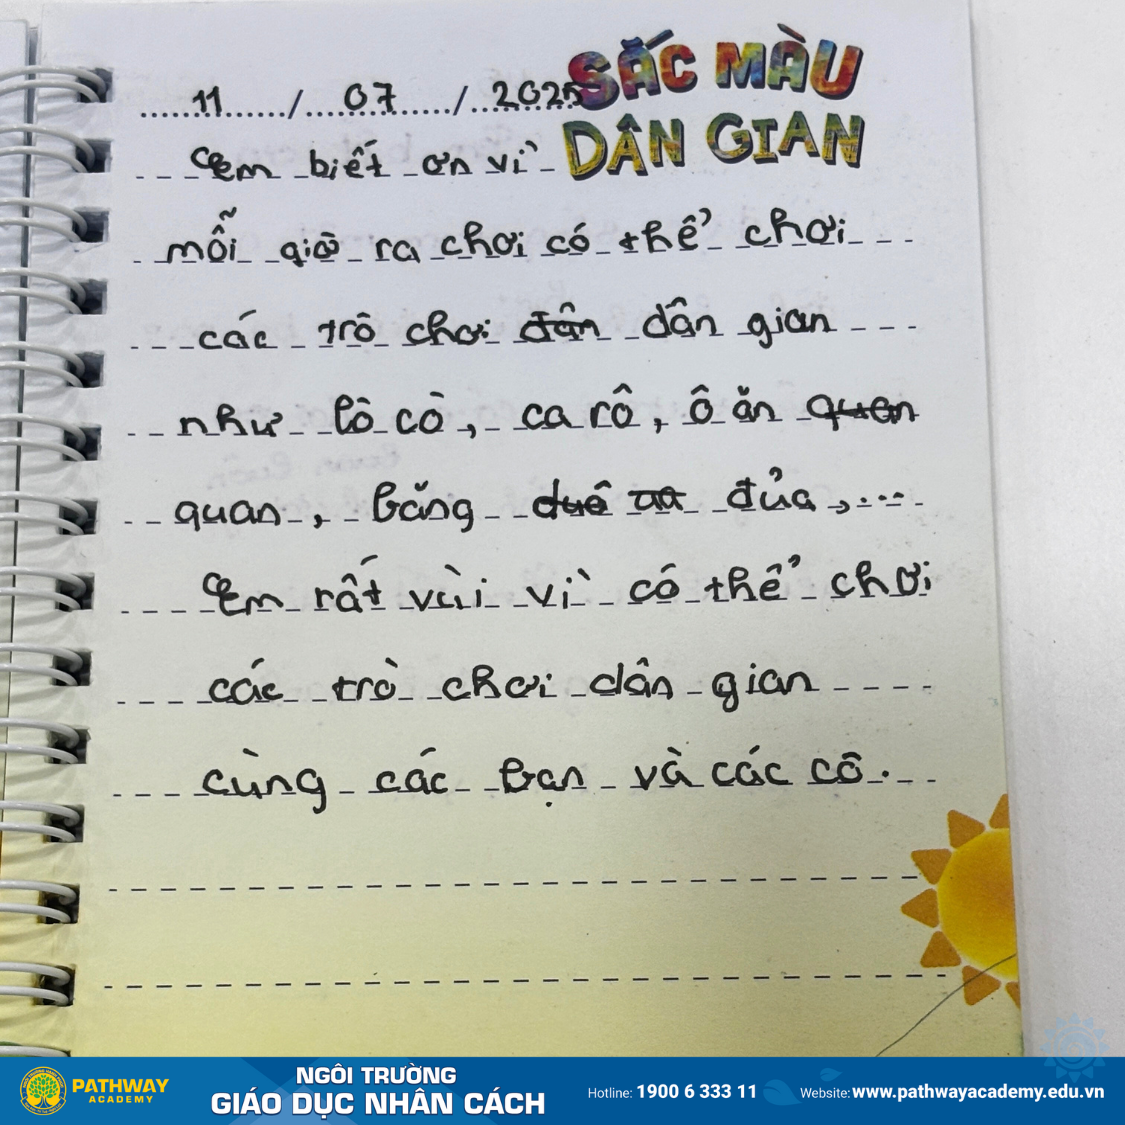 SẮC MÀU
DÂN GIAN
11 / 07 / 2025
Em biết ơn vì
mỗi giờ ra chơi có thể chơi
các trò chơi dân dân gian
như lò cò, ca rô, ô ăn quen
quan, băng đuê ua đủa,...
Em rất vùi vì có thể chơi
các trò chơi dân gian
cùng các bạn và các cô.
PATHWAY
ACADEMY
NGÔI TRƯỜNG
GIÁO DỤC NHÂN CÁCH
Hotline: 1900 6 333 11
Website: www.pathwayacademy.edu.vn